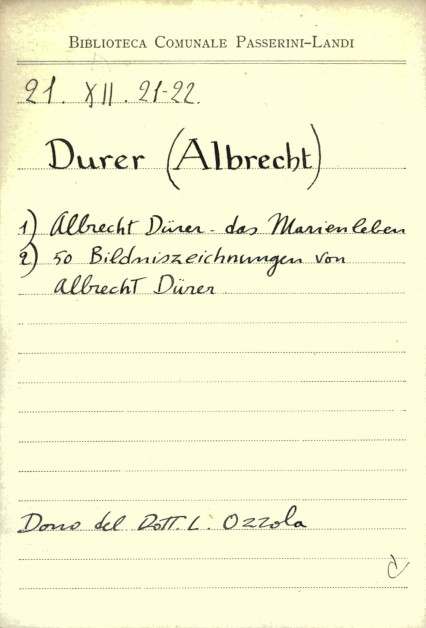 BIBLIOTECA COMUNALE PASSERINI-LANDI
21. XII. 21-22.
Durer (Albrecht)
1) Albrecht Dürer - das Marienleben
2) 50 Bildniszeichnungen von
Albrecht Dürer
Dono del Dott. L. Ozzola